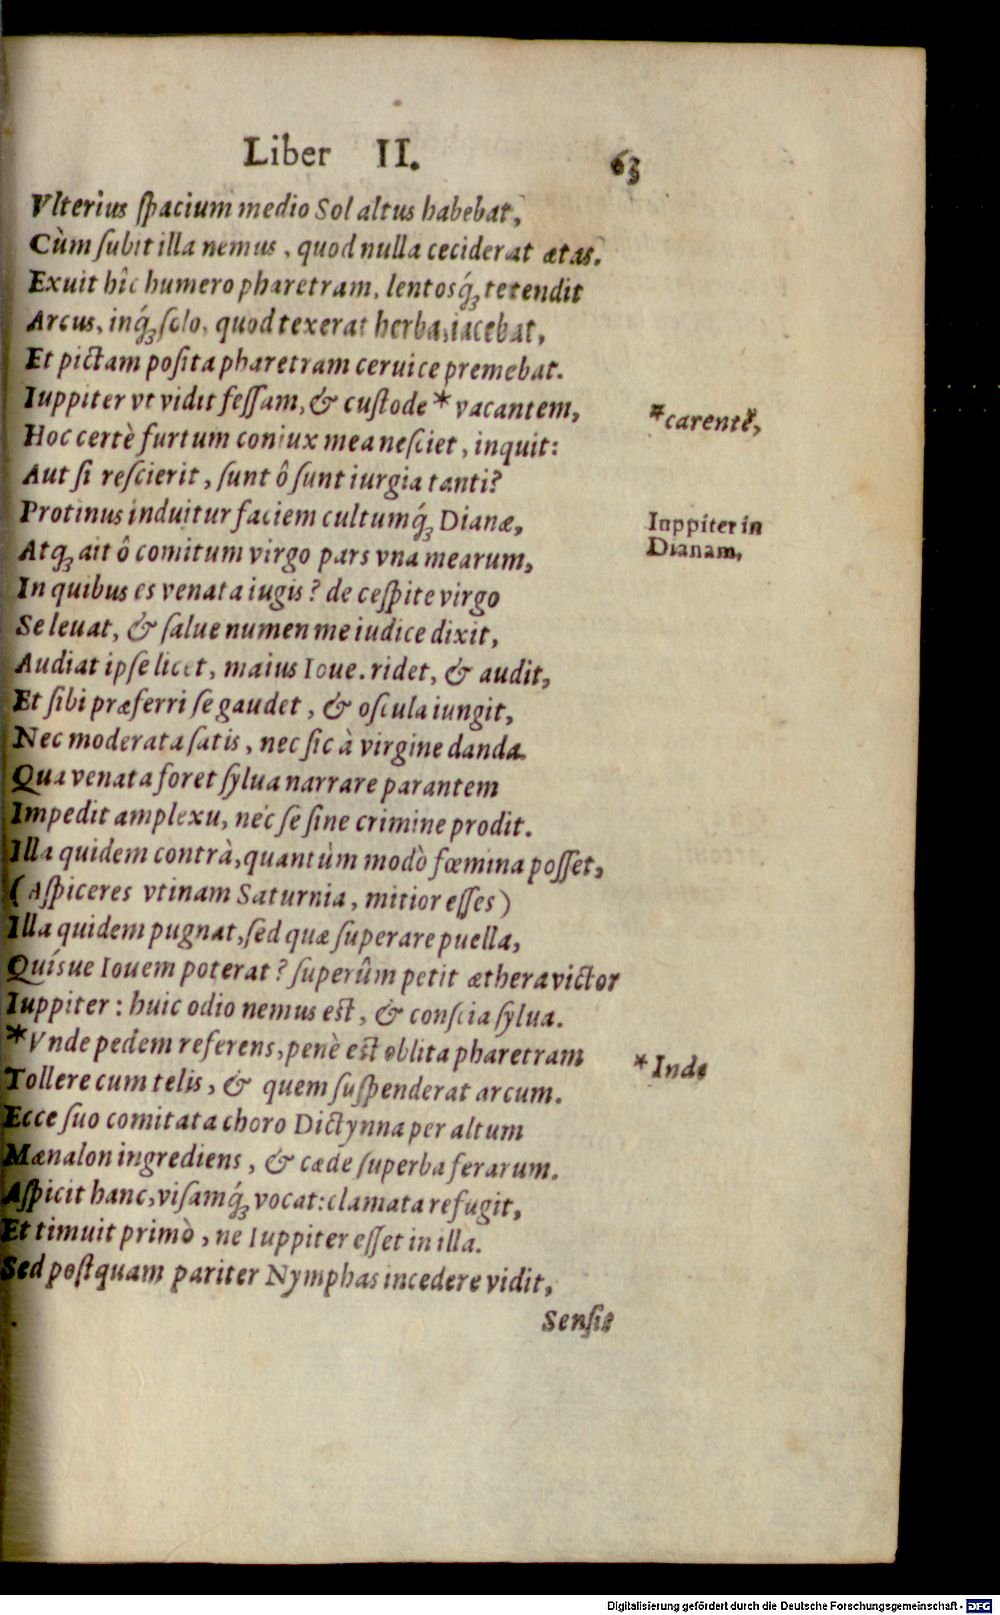 Liber II. 63
Vlterius ſpacium medio Sol altus habebat,
Cùm ſubit illa nemus, quod nulla ceciderat ætas.
Exuit hîc humero pharetram, lentosq́ꝫ tetendit
Arcus, inq́ꝫ ſolo, quod texerat herba, iacebat,
Et pictam poſita pharetram ceruice premebat.
Iuppiter vt vidit feſſam, & cuſtode * vacantem,
*carentẽ,
Hoc certè furtum coniux mea neſciet, inquit:
Aut ſi reſcierit, ſunt ô ſunt iurgia tanti?
Protinus induitur faciem cultumq́ꝫ Dianæ,
Iuppiter in
Dianam,
Atqꝫ ait ô comitum virgo pars vna mearum,
In quibus es venata iugis? de ceſpite virgo
Se leuat, & ſalue numen me iudice dixit,
Audiat ipſe licet, maius Ioue. ridet, & audit,
Et ſibi præferri ſe gaudet, & oſcula iungit,
Nec moderata ſatis, nec ſic à virgine danda.
Qua venata foret ſylua narrare parantem
Impedit amplexu, nec ſe ſine crimine prodit.
Illa quidem contrà, quantùm modò fœmina poſſet,
(Aſpiceres vtinam Saturnia, mitior eſſes)
Illa quidem pugnat, ſed quæ ſuperare puella,
Quíſue Iouem poterat? ſuperûm petit æthera victor
Iuppiter: huic odio nemus eſt, & conſcia ſylua.
*Vnde pedem referens, penè eſt oblita pharetram
*Inde
Tollere cum telis, & quem ſuſpenderat arcum.
Ecce ſuo comitata choro Dictynna per altum
Mænalon ingrediens, & cæde ſuperba ferarum.
Aſpicit hanc, viſamq́ꝫ vocat: clamata refugit,
Et timuit primò, ne Iuppiter eſſet in illa.
Sed poſtquam pariter Nymphas incedere vidit,
Senſit
Digitalisierung gefördert durch die Deutsche Forschungsgemeinschaft - DFG